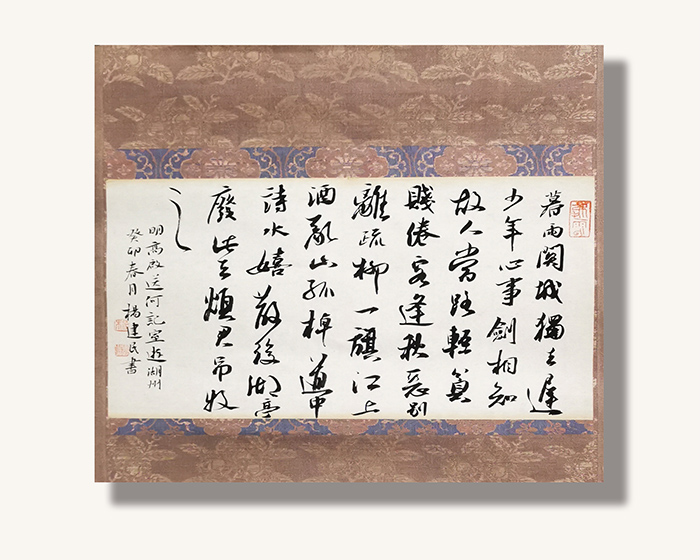 暮雨関城獨去遲
少年心事劍相知
故人當路輕貧
賤倦客逢秋惡別
離疏柳一旗江上
酒亂山孤棹道中
詩水嬉散後湖亭
廢此去煩君吊牧
之
明高啟送何記室遊湖州
癸卯春月楊建民書